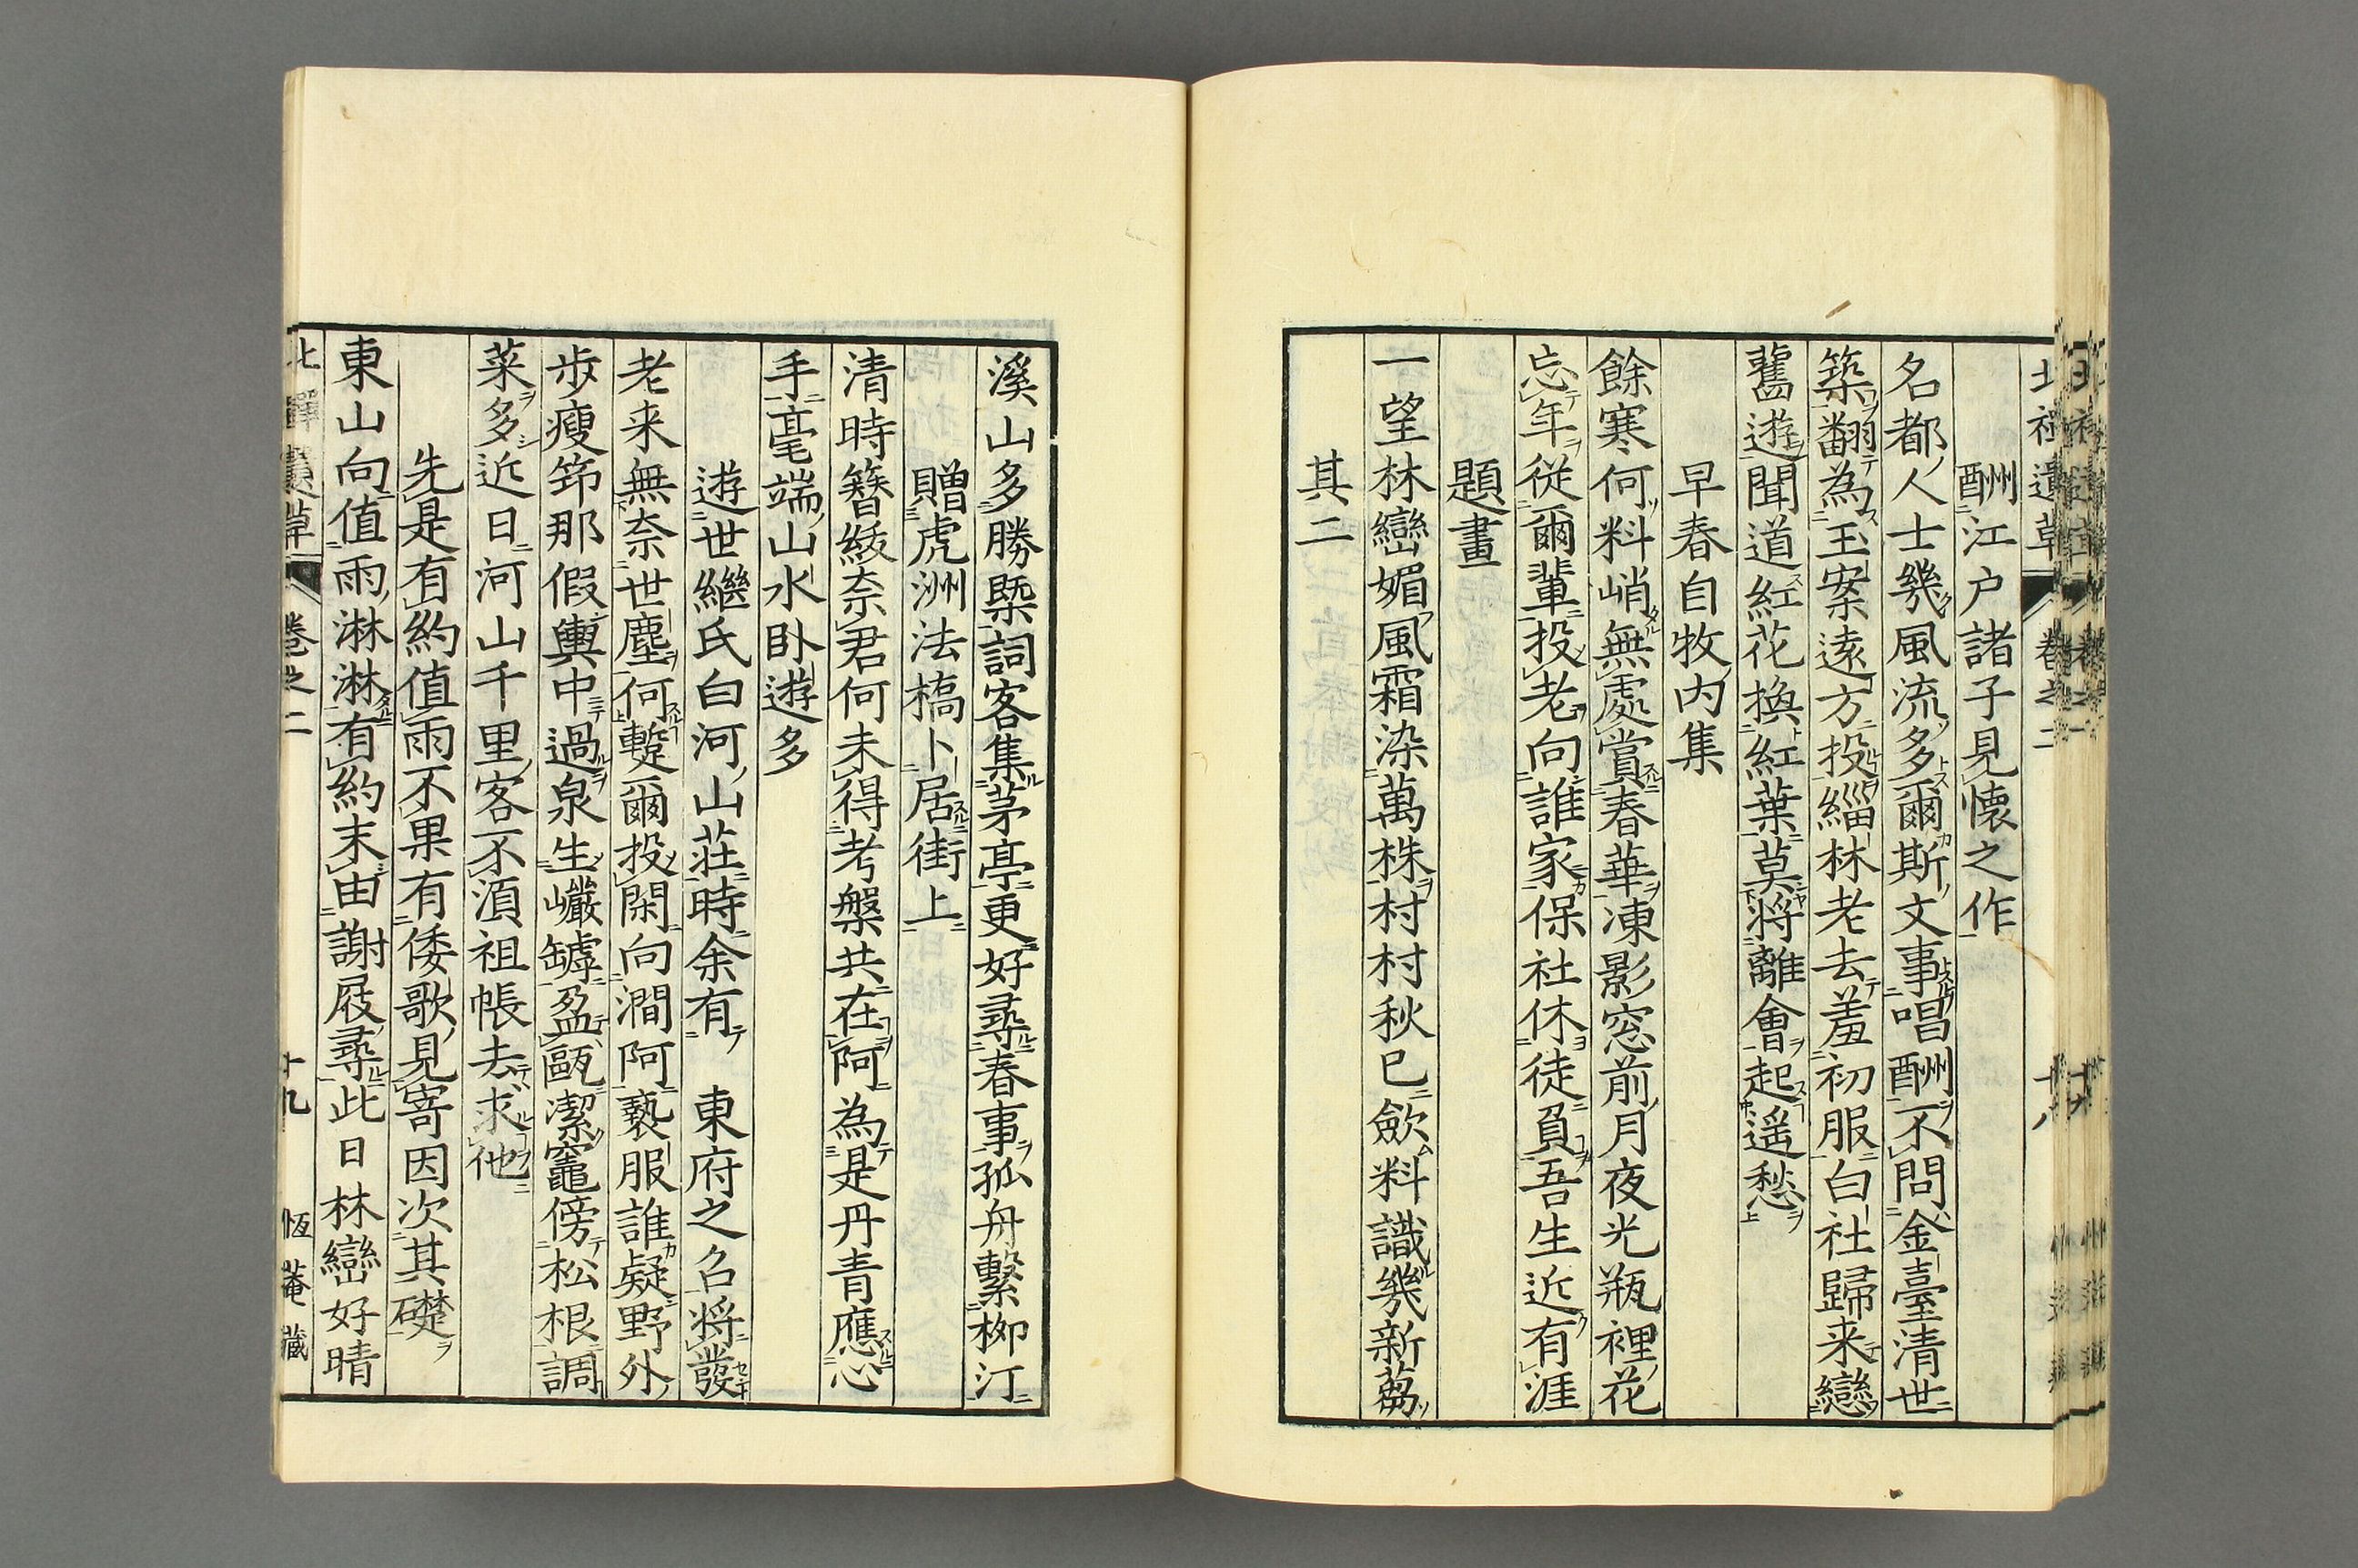 酬江户諸子見懐之作
名都人士幾風流多爾斯文事唱酬不問金臺清世
築翻為玉案遠方投緇林老去羞初服白社歸来戀
舊遊聞道紅花換紅葉莫将離會起遥愁
早春自牧内集
餘寒何料峭無處賞春華凍影窓前月夜光瓶裡花
忘年從爾輩投老向誰家保社休徒負吾生近有涯
題畫
一望林巒媚風霜染萬株村村秋已歛料識幾新蒭
其二
溪山多勝槩詞客集茅亭更好尋春事孤舟繫柳汀
贈虎洲法橋卜居街上
清時簪紱奈君何未得考槃共在阿為是丹青應心
手毫端山水卧遊多
遊世繼氏白河山莊時余有 東府之名将發
老来無奈世塵何蹔爾投閑向澗阿褻服誰疑野外
歩瘦筇那假輿中過泉生巘罅盈甌潔竈傍松根調
菜多近日河山千里客不湏祖帳去求他
先是有約值雨不果有倭歌見寄因次其礎
東山向值雨淋淋有約末由謝屐尋此日林巒好晴
北禪遺草 卷之二 十九 恆菴藏